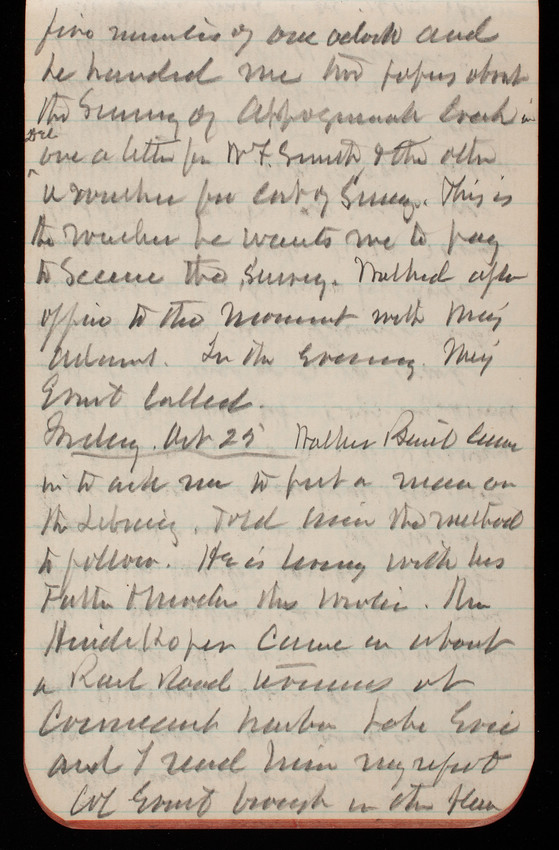 five minutes of one o'clock and
he handed me two papers about
the Survey of Creek in
one a letter fm W. F. Smith & the other
a voucher for cost of Survey. This is
the voucher he wants me to pay
to Secure the Survey. Walked after
office to the monument with Maj
Adams. In the evening Maj
Ernst called.
Friday. Oct 25 Walker came
in to ask me to put a man on
the Library. Told him the method
to follow. He is living with his
Father & Mother this winter.
came in about
a Rail Road terminus at
Conneaut harbor Lake Erie
and I read him my report
Col Ernst brough in the